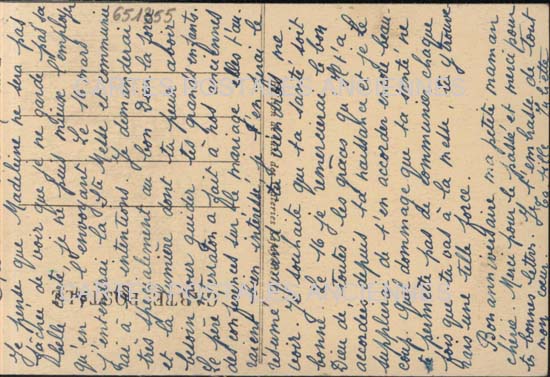 651855
Je pense que Madeleine ne sera pas
fâchée de voir que je ne garde pas sa
belle carte je ne puis mieux l'employer
qu'en te l'envoyant. Le 16 mars
j'entendrai la Ste Messe et communie
rai à tes intentions. Je demanderai
très spécialement au bon Dieu la force
et la lumière dont tu peux avoir
besoin pour guider tes grands enfants
Le père Baraton a fait à nos anciennes
des conférences sur le mariage, elles t'au-
raient bien intéressée, je t'en ferai le
résumé quand tu viendras me
voir. Je souhaite que ta santé soit
bonne. Le 16 je remercierai le bon
Dieu de toutes les grâces qu'il t'a
accordées depuis ta naissance et je le
supplierai de t'en accorder encore beau-
coup. Quel dommage que ta santé ne
te permette pas de communier chaque
fois que tu vas à la messe, j'y trouve
tais une telle force.
Bon anniversaire ma petite maman
chérie. Merci pour le passé et merci pour
ta bonne lettre. Je t'embrasse de tout
mon cœur. Ta fille
CARTE POSTALE